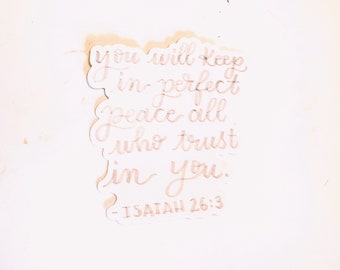 you will keep
in perfect
peace all
who trust
in you.
- ISAIAH 26:3